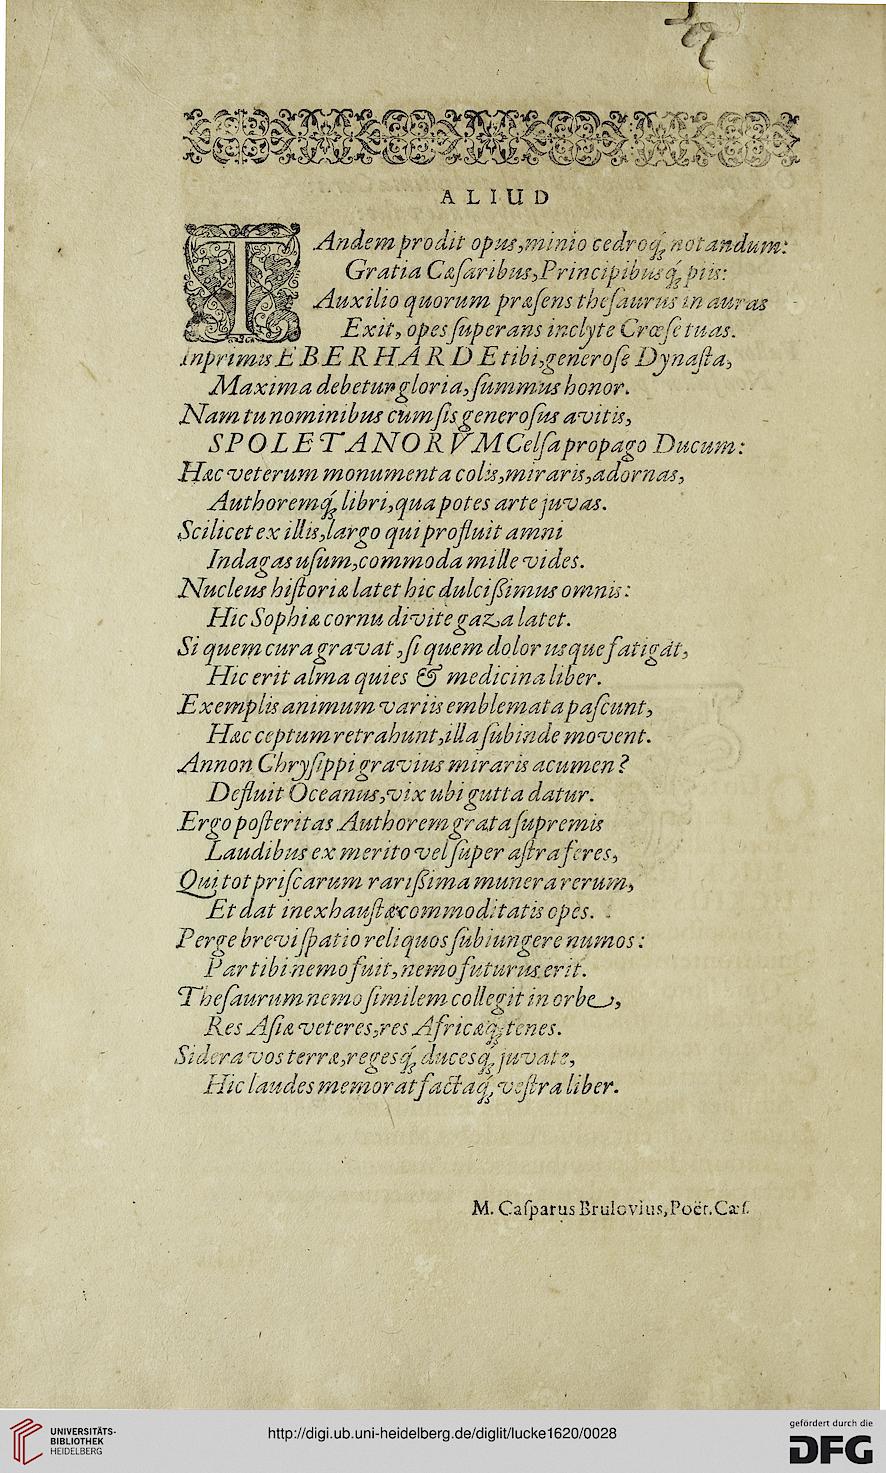 ALIUD
TAndem prodit opus, minio cedroq́; notandum:
Gratia Cæſaribus, Principibusq́; piis:
Auxilio quorum præſens theſaurus in auras
Exit, opes ſuperans inclyte Crœſe tuas.
Inprimis EBERHARDE tibi, generoſe Dynaſta,
Maxima debetur gloria, ſummus honor.
Nam tu nominibus cùm ſis generoſus avitis,
SPOLETANORVM Celſa propago Ducum:
Hæc veterum monumenta colis, miraris, adornas,
Authoremq́; libri, qua potes arte juvas.
Scilicet ex illis, largo qui profluit amni
Indagas uſum, commoda mille vides.
Nucleus hiſtoriæ latet hîc dulciſſimus omnis:
Hic Sophiæ cornu divite gaza latet.
Si quem cura gravat, ſi quem dolor usque fatigat,
Hic erit alma quies & medicina liber.
Exemplis animum variis emblemata paſcunt,
Hæc ceptum retrahunt, illa ſubinde movent.
Annon Chryſippi gravius miraris acumen?
Defluit Oceanus, vix ubi gutta datur.
Ergo poſteritas Authorem grata ſupremis
Laudibus ex merito vel ſuper aſtra feres,
Qui tot priſcarum rariſſima munera rerum,
Et dat inexhauſtæ commoditatis opes.
Perge brevi ſpatio reliquos ſubiungere numos:
Par tibi nemo fuit, nemo futurus erit.
Theſaurum nemo ſimilem collegit in orbe,
Res Aſiæ veteres, res Africæq́; tenes.
Sidera vos terræ, regesq́; ducesq́; juvate,
Hic laudes memorat factaq́; veſtra liber.
M. Caſparus Brulovius, Poët. Cæſ.
UNIVERSITÄTS-
BIBLIOTHEK
HEIDELBERG
http://digi.ub.uni-heidelberg.de/diglit/lucke1620/0028
gefördert durch die
DFG